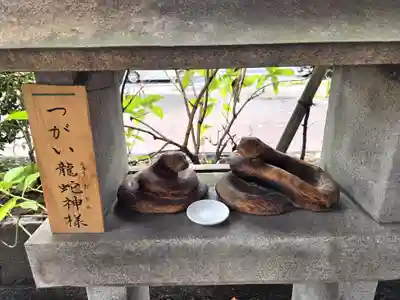 つがい龍蛇神様